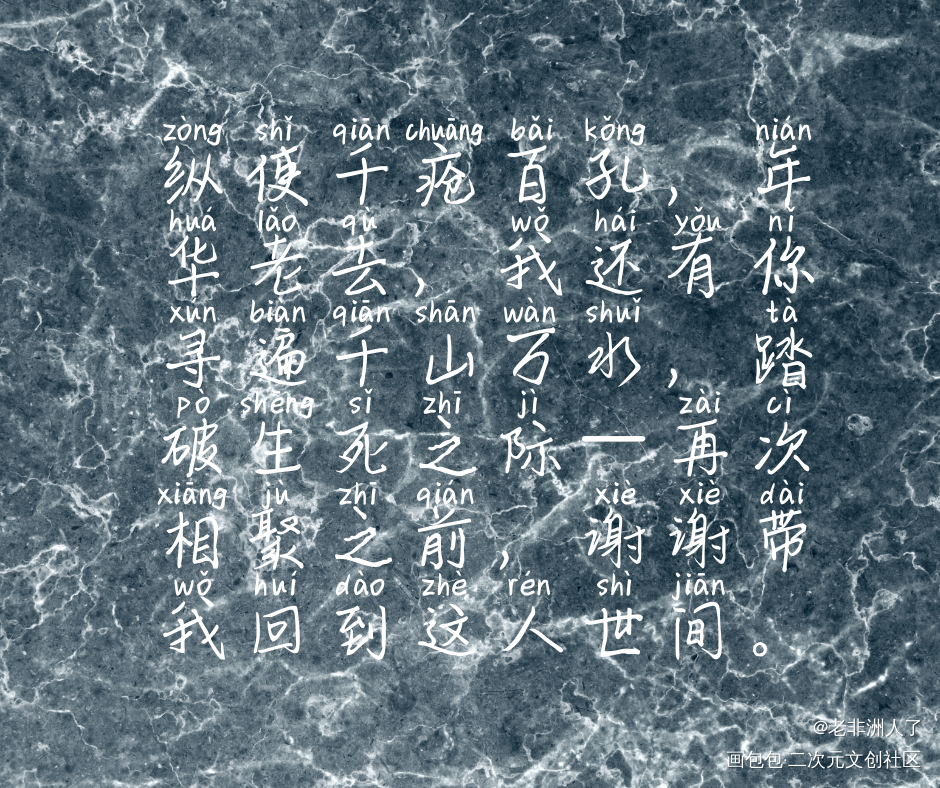 zòng shǐ qiān chuāng bǎi kǒng nián
纵使千疮百孔，年
huá lǎo qù wǒ hái yǒu nǐ
华老去，我还有你
xún biàn qiān shān wàn shuǐ tà
寻遍千山万水，踏
pò shēng sǐ zhī jì zài cì
破生死之际一再次
xiāng jù zhī qián xiè xiè dài
相聚之前，谢谢带
wǒ huí dào zhè rén shì jiān
我回到这人世间。
@老非洲人了
画包包·二次元文创社区